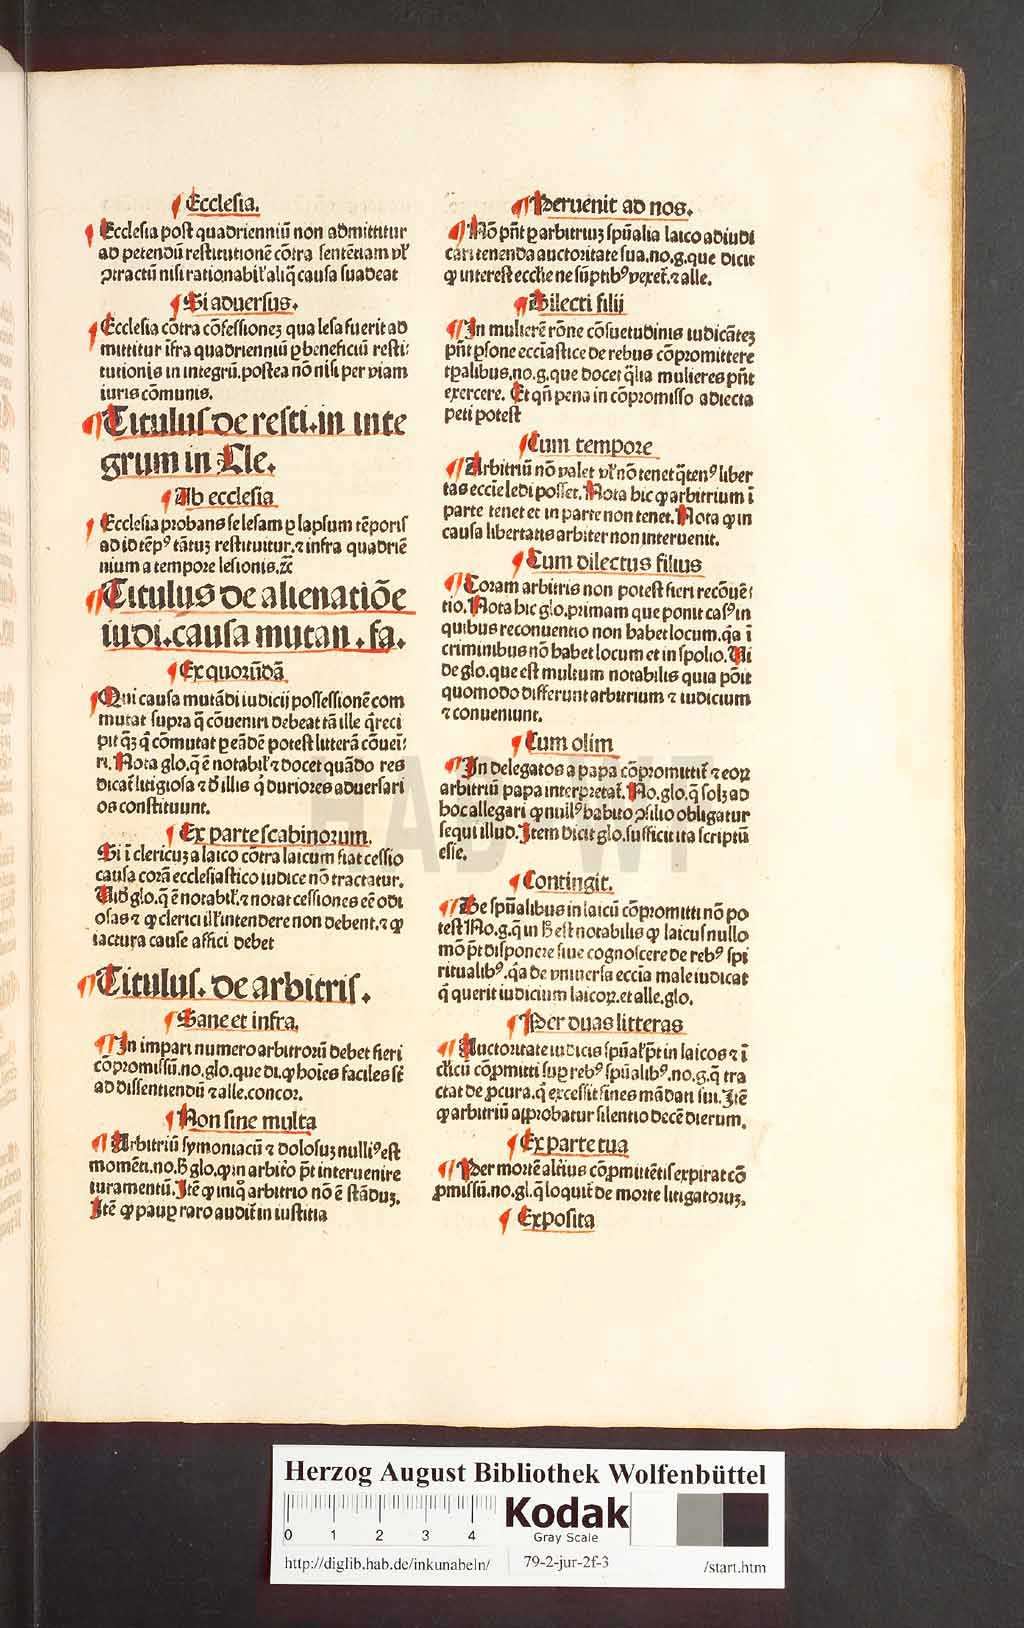 ¶ Ecclesia.
¶ Ecclesia post quadrienniū non admittitur
ad petendū restitutionē cōtra sententiam vl'
ꝯtractū nisi rationabil' aliq̄ causa suadeat
¶ Si aduersus.
¶ Ecclesia cōtra cōfessionez qua lesa fuerit ad
mittitur īfra quadrienniū ꝑ beneficiū resti:
tutionis in integrū. postea nō nisi per viam
iuris cōmunis.
¶ Titulus de resti. in inte
grum in Cle.
¶ Ab ecclesia
¶ Ecclesia probans se lesam ꝑ lapsum tēporis
ad id tēpꝰ tātuz restituitur. ⁊ infra quadriē
nium a tempore lesionis. ⁊c̄
¶ Titulus de alienatiōe
iudi. causa mutan. fa.
¶ Ex quorūdā
¶ Qui causa mutādi iudicij possessionē com
mutat supra q̄ cōueniri debeat tā ille q̄ reci
pit q̄ȝ q̄ cōmutat ꝑ eādē potest litterā cōueē:
ri. Nota glo. q̄ ē notabil' ⁊ docet quādo res
dicat' litigiosa ⁊ đ illis q̄ duriores aduersari
os constituunt.
¶ Ex parte scabinorum.
Si ī clericuz a laico cōtra laicum fiat cessio
causa corā ecclesiastico iudice nō tractatur.
Uid' glo. q̄ ē notabil'. ⁊ notat cessiones eē odi
osas ⁊ ꝙ clerici ill' intendere non debent. ⁊ ꝙ
iactura cause affici debet
¶ Titulus. de arbitris.
¶ Sane et infra.
¶ In impari numero arbitrorū debet fieri
cōpromissū. no. glo. que di. ꝙ hoīes faciles sē
ad dissentiendū ⁊ alle. concor.
¶ Non sine multa
¶ Arbitriū symoniacū ⁊ dolosuz nulliꝰ est
momēti. no. ħ glo. ꝙ in arbit̄o pt̄ interuenire
iuramentū. Itē ꝙ iniq̄ arbitrio nō ē stāduȝ.
Itē ꝙ pauꝑ raro audit̄ in iustitia
¶ Peruenit ad nos.
¶ Nō pn̄t ꝑ arbitriuȝ spūalia laico adiudi
cari tenenda auctoritate sua. no. g. que dicit
ꝙ interest ecclīe ne sūptibꝰ vexet̄. ⁊ alle.
¶ Dilecti filij
¶ In mulierē rōne cōsuetudinis iudicātez
pn̄t ꝑsone ecclīastice de rebus cōpromittere
tꝑalibus. no. g. que docet q̄lia mulieres pn̄t
exercere. Et qn̄ pena in cōpromisso adiecta
peti potest
¶ Cum tempore
¶ Arbitriū nō valet vl' nō tenet q̄tenꝰ liber
tas eccīe ledi posset. Nota hic ꝙ arbitrium ī
parte tenet et in parte non tenet. Nota ꝙ in
causa libertatis arbiter non interuenit.
¶ Cum dilectus filius
¶ Coram arbitris non potest fieri recōuēt
tio. Nota hic glo. primam que ponit casꝰ in
quibus reconuentio non habet locum. q̄a ī
criminibus nō habet locum et in spolio. Ui
de glo. que est multum notabilis quia pōit
quomodo differunt arbitrium ⁊ iudicium
⁊ conueniunt.
¶ Cum olim
¶ In delegatos a papa cōpromittit̄ ⁊ eoꝝ
arbitriū papa interpretat̄. No. glo. q̄ solȝ ad
hoc allegari ꝙ nullꝰ habito ꝯsilio obligatur
sequi illud. Item dicit glo. sufficit ita scriptū
esse.
¶ Contingit.
¶ De spūalibus in laicū cōpromitti nō po
test No. g. q̄ in ħ est notabilis ꝙ laicus nullo
mō pt̄ disponere siue cognoscere de rebꝰ spi
ritualibꝰ. q̄a de vniuersa eccīa male iudicat
q̄ querit iudicium laicoꝝ. et alle. glo.
¶ Per duas litteras
¶ Auctoritate iudicis spūal' pt̄ in laicos ⁊ ī
cl'icū cōꝓmitti suꝑ rebꝰ spūalibꝰ. no. g. q̄ tra
ctat de ꝓcura. q̄ excessit fines mādati sui. Itē
ꝙ arbitriū aꝓbatur silentio decē dierum.
¶ Ex parte tua
¶ Per mortē alt̄ius cōꝓmittētis expirat cō
ꝓmissū. no. gl. q̄ loquit̄ de morte litigatoruȝ.
¶ Exposita
HAB WF
Herzog August Bibliothek Wolfenbüttel
0 1 2 3 4
Kodak
Gray Scale
http://diglib.hab.de/inkunabeln/ 79-2-jur-2f-3 /start.htm